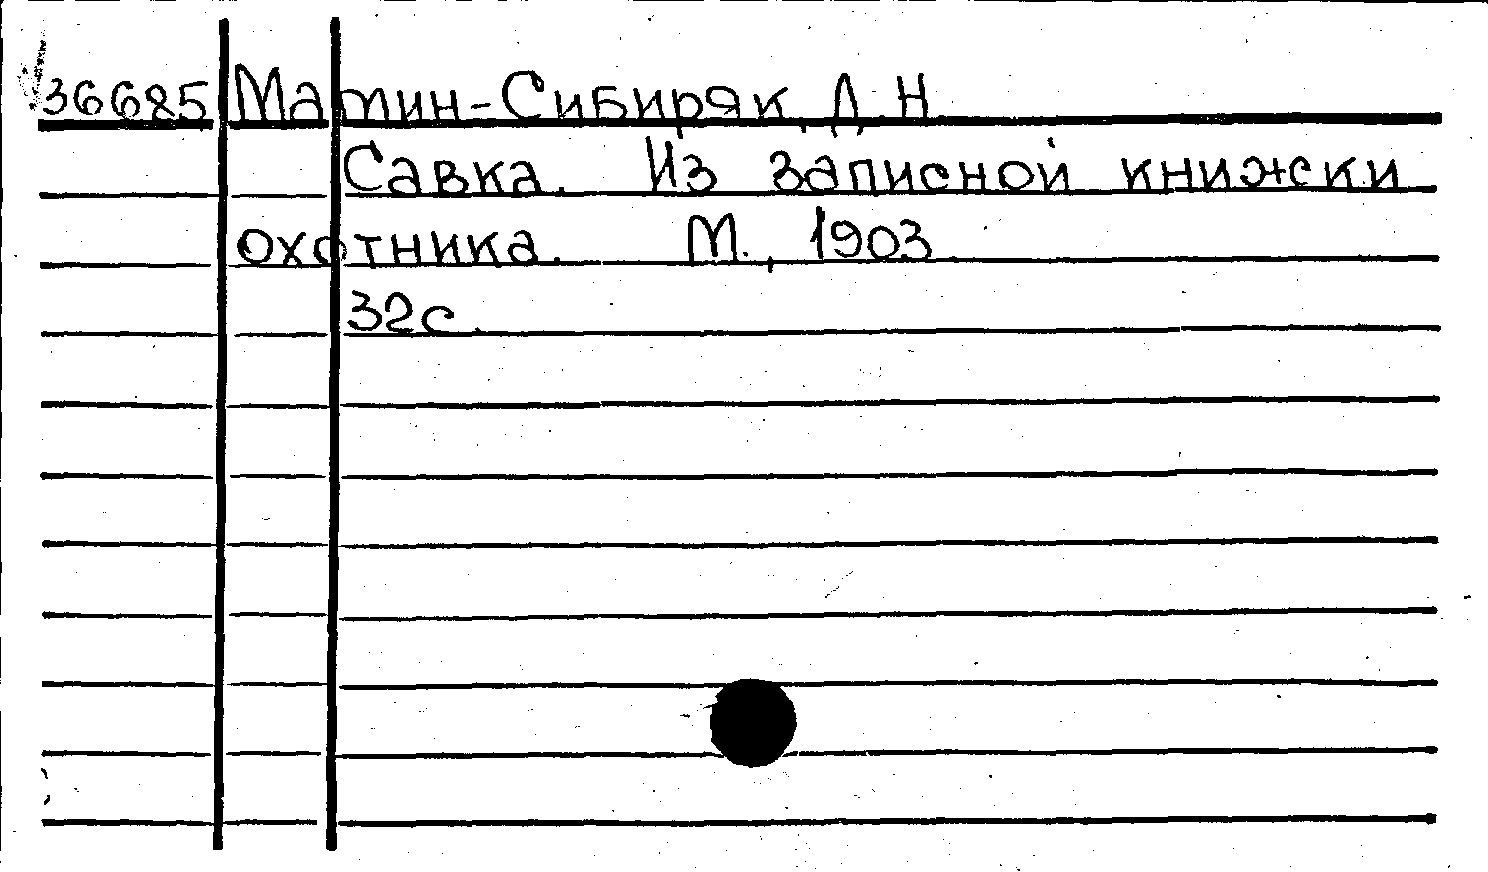 36685 Матин-Сибиряк, Д.Н.
Савка. Из записной книжски
охотника. М., 1903.
32с.